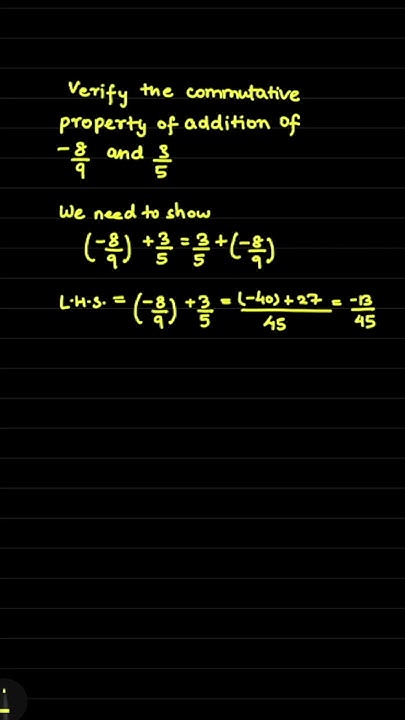 Verify the commutative
property of addition of
-8/9 and 3/5
We need to show
(-8/9) + 3/5 = 3/5 + (-8/9)
L.H.S. = (-8/9) + 3/5 = (-40) + 27 / 45 = -13/45